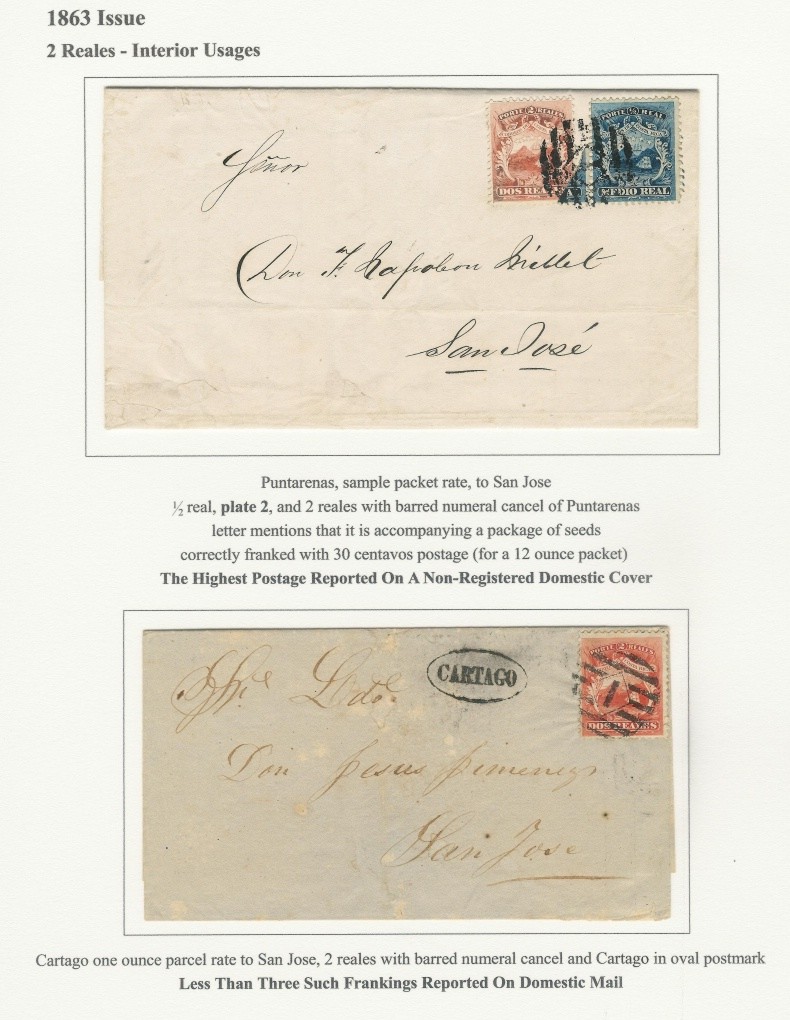 1863 Issue
2 Reales - Interior Usages
PORTE 2 REALES
PORTE ½ REAL
DOS REALES
MEDIO REAL
Señor
Don F. Napoleon Millet
San José
Puntarenas, sample packet rate, to San Jose
½ real, plate 2, and 2 reales with barred numeral cancel of Puntarenas
letter mentions that it is accompanying a package of seeds
correctly franked with 30 centavos postage (for a 12 ounce packet)
The Highest Postage Reported On A Non-Registered Domestic Cover
CARTAGO
PORTE 2 REALES
1
DOS REALES
Ldo.
Don Jesus Jimenez
San Jose
Cartago one ounce parcel rate to San Jose, 2 reales with barred numeral cancel and Cartago in oval postmark
Less Than Three Such Frankings Reported On Domestic Mail